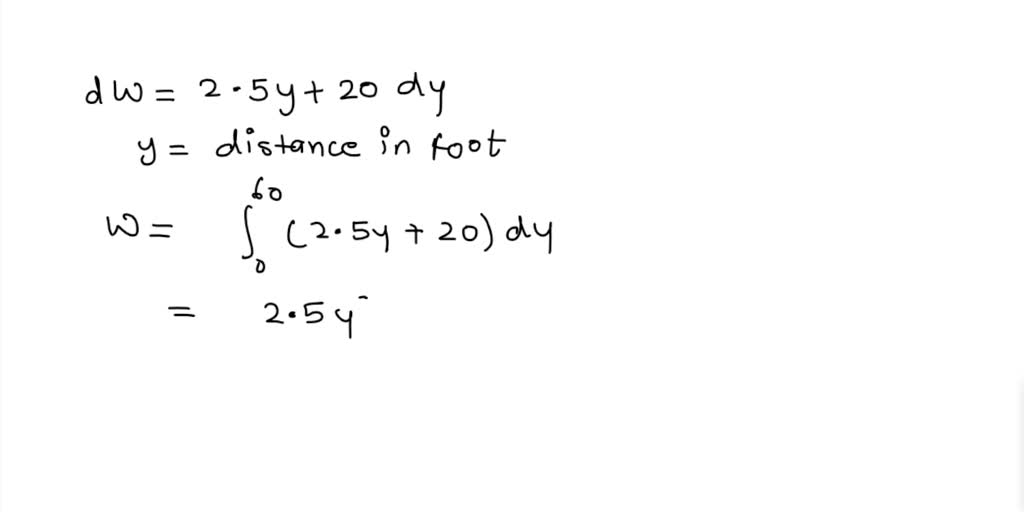 dW = 2.5y + 20 dy
y = distance in foot
W = ∫₀⁶⁰ (2.5y + 20) dy
= 2.5y